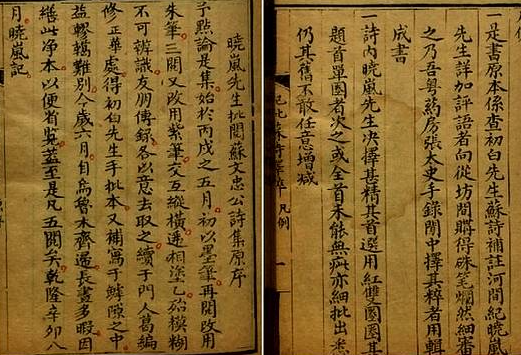 一是書原本係查初白先生蘇詩補註河間紀曉嵐
先生詳加評語者向從坊間購得硃笔爛然細審
之乃吾粤葯房張太史手錄閒中擇其粹者用輯
成書
一詩內曉嵐先生决擇甚精其首選用紅雙圈圈其
題首單圈者次之或全首未能無疵亦細批出悉
仍其舊不敢任意增減
紀批蘇詩擇粹 凡例
曉嵐先生批閱蘇文忠公詩集原序
予點論是集始於丙戌之五月初以墨筆再閱改用
朱筆三閱又改用紫筆交互縱橫遞相塗乙殆模糊
不可辨識友朋傳錄各以意去取之續于門人葛編
修正華處得初白先生手批本又補寫于罅隙之中
益轇轕難別今歲六月自烏魯木齊還長晝多暇因
繕此净本以便省覽蓋至是凡五閱矣乾隆辛卯八
月曉嵐記